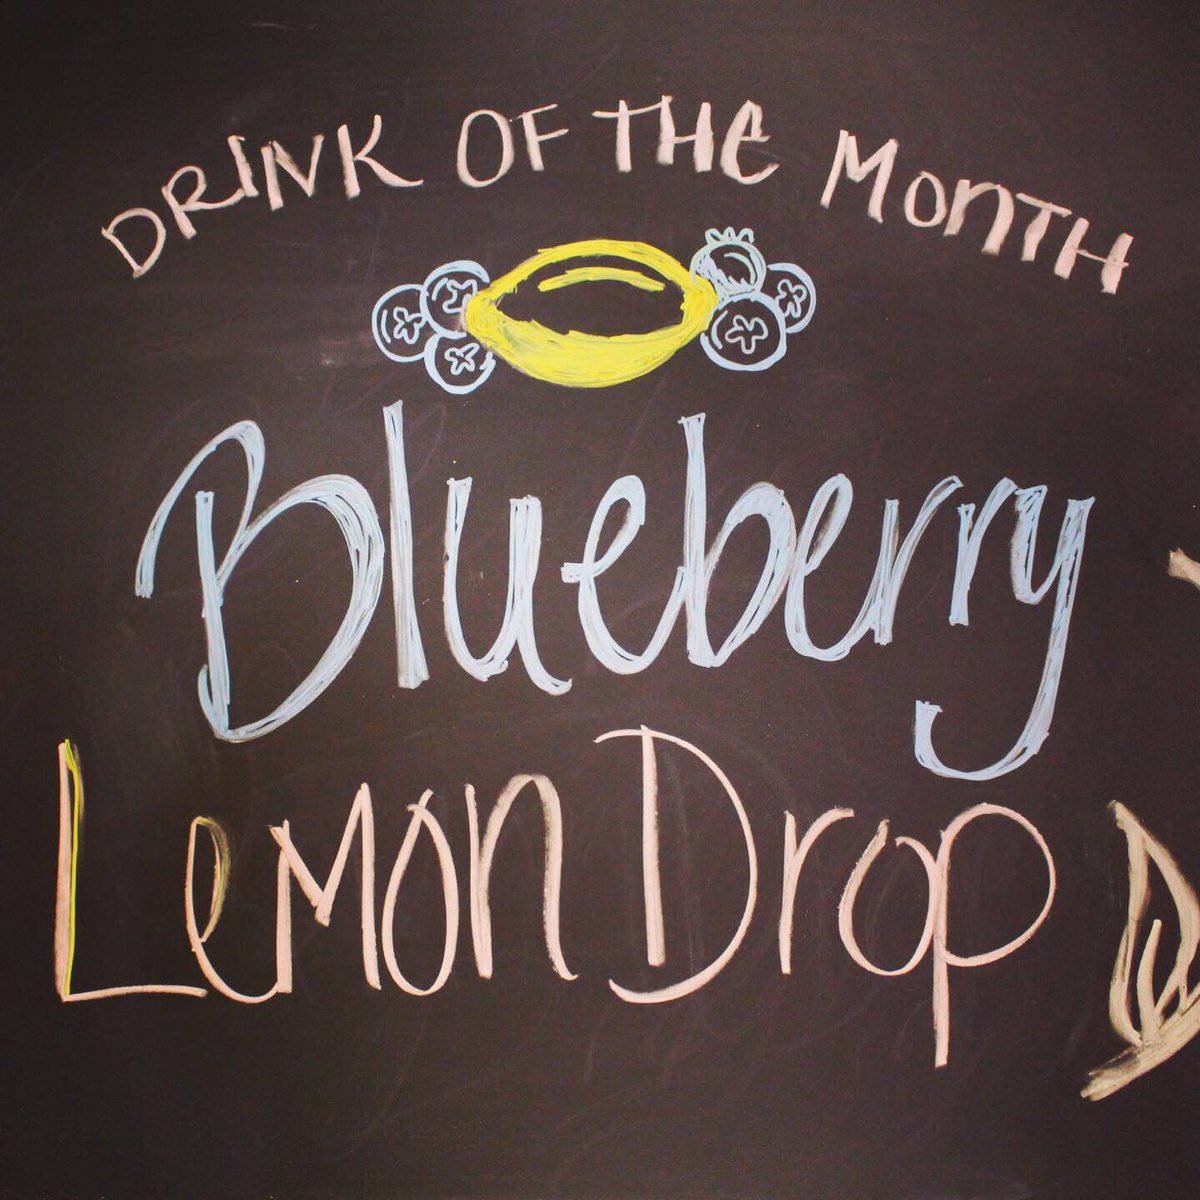 DRINK OF THE MONTH
Blueberry
Lemon Drop